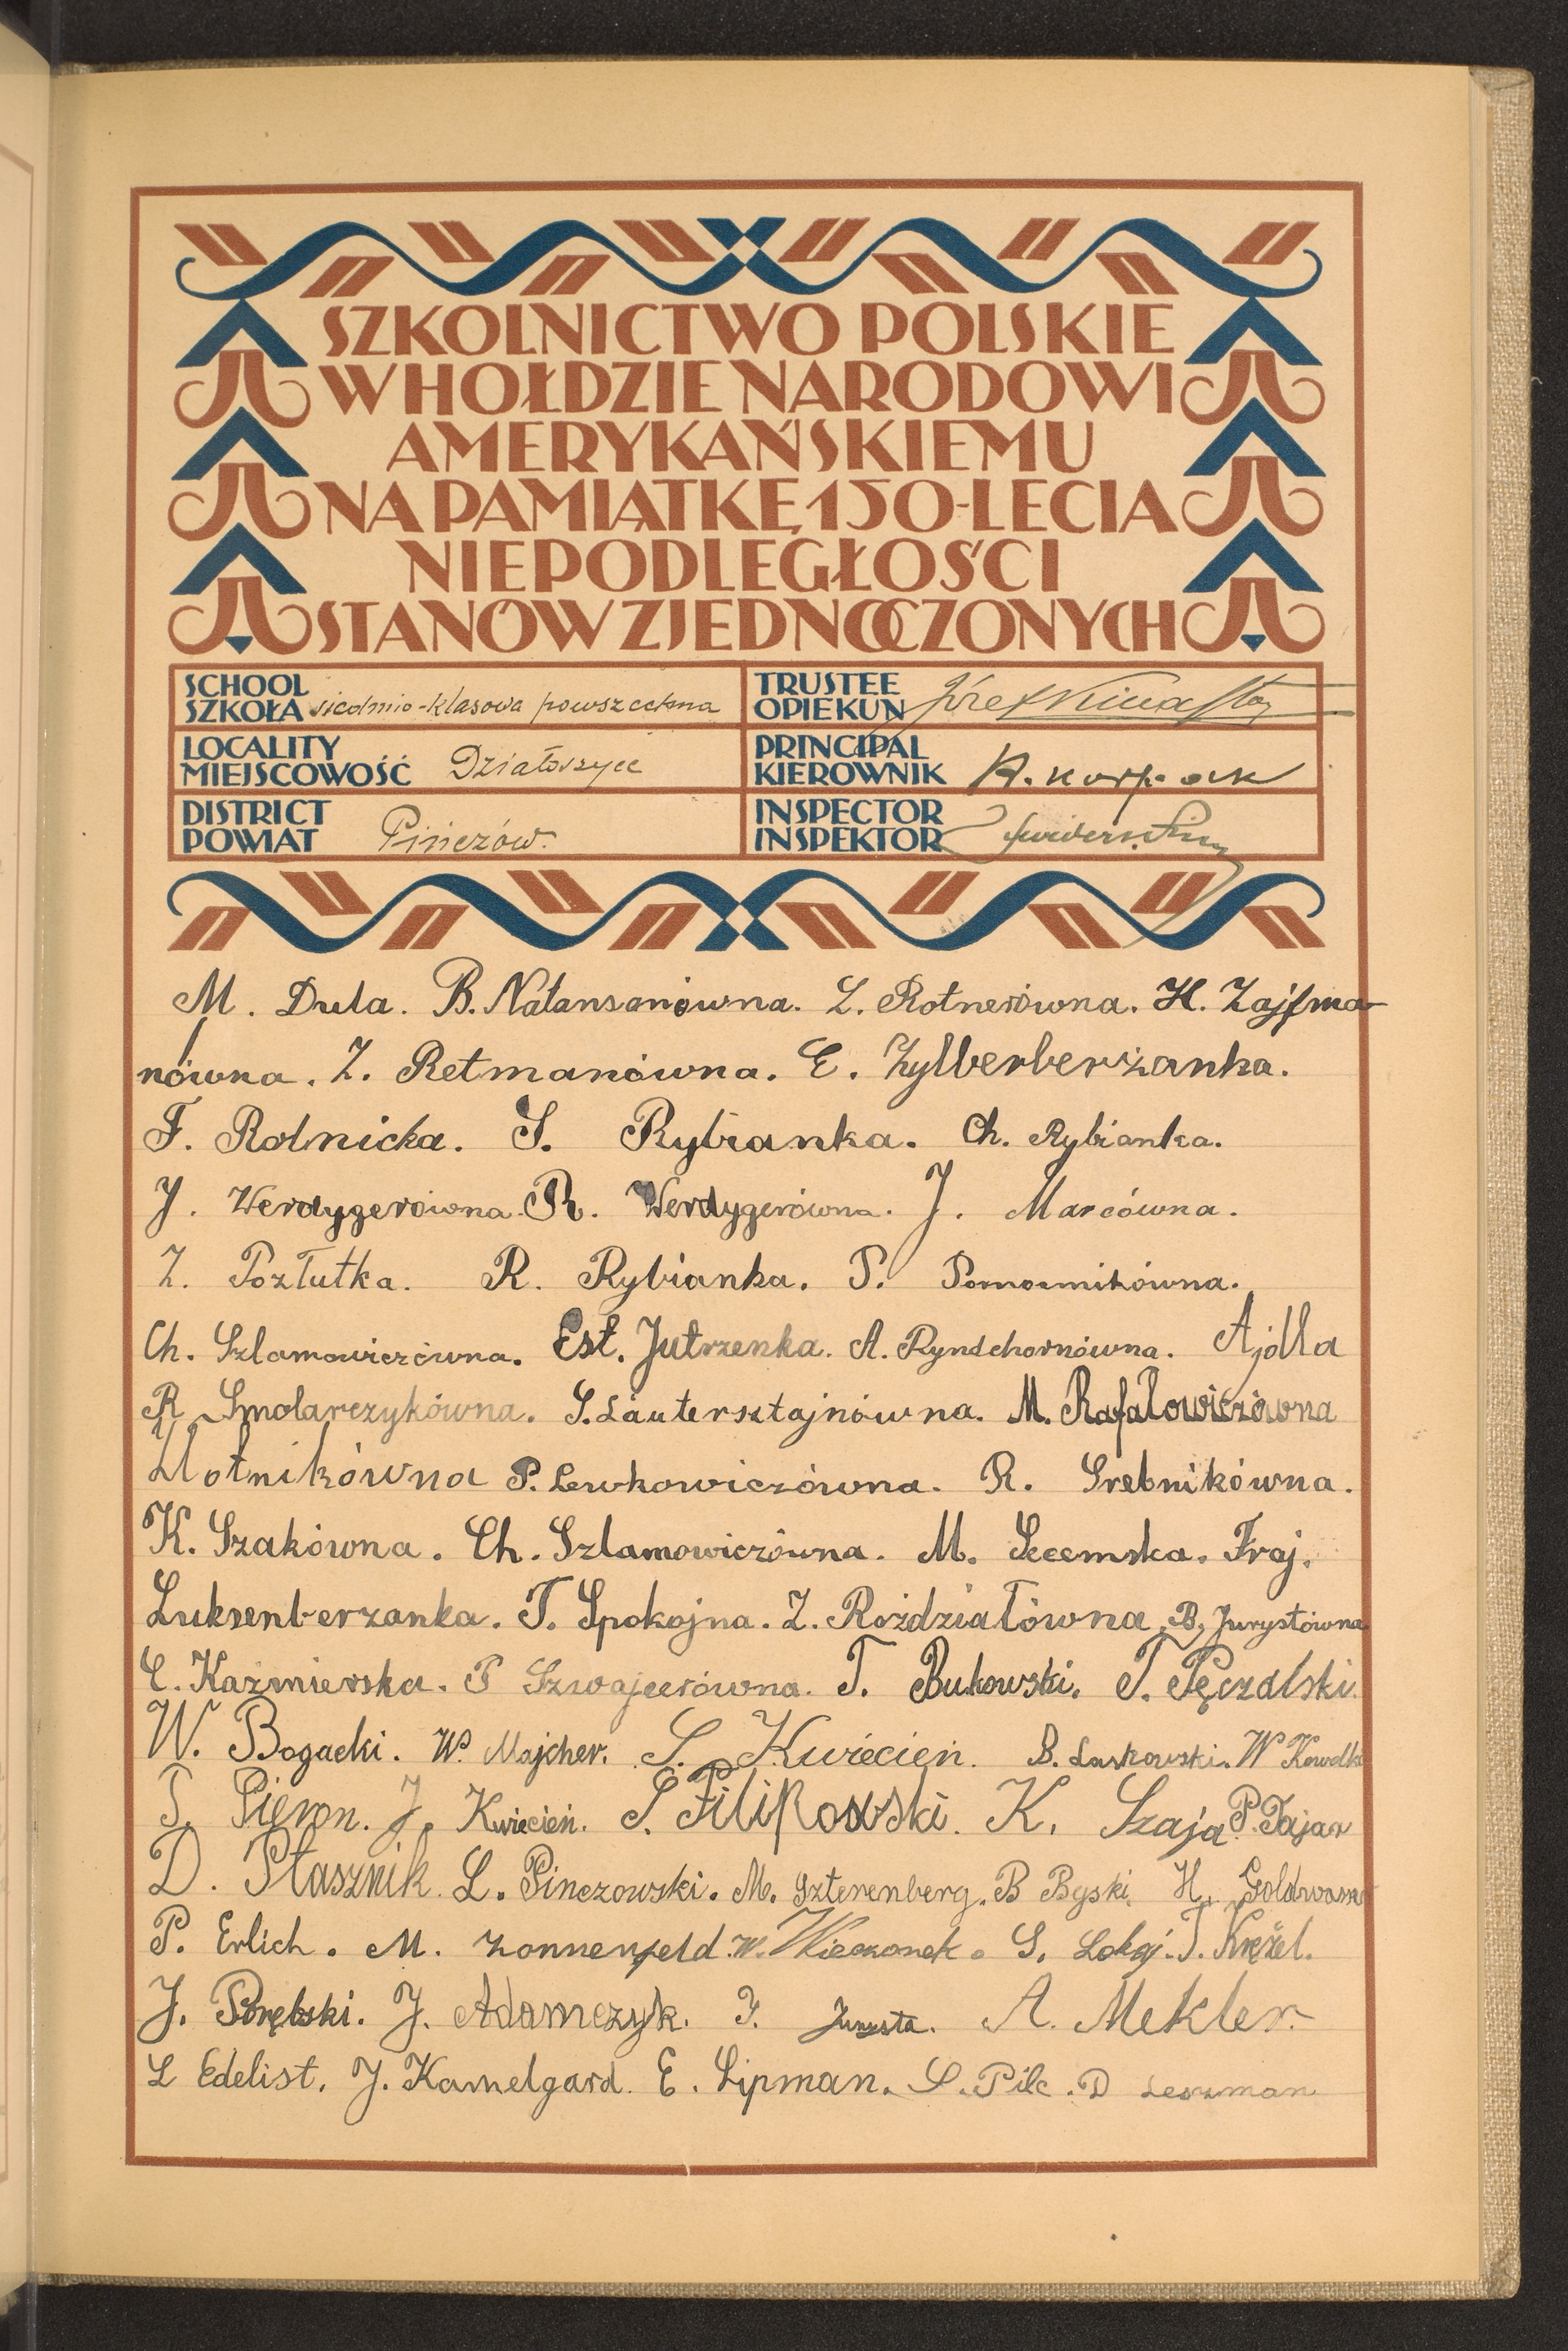 SZKOLNICTWO POLSKIE
W HOŁDZIE NARODOWI
AMERYKAŃSKIEMU
NA PAMIĄTKĘ 150-LECIA
NIEPODLEGŁOŚCI
STANÓW ZJEDNOCZONYCH
SCHOOL
SZKOŁA siedmio-klasowa powszechna
TRUSTEE
OPIEKUN Józef
LOCALITY
MIEJSCOWOŚĆ Działoszyce
PRINCIPAL
KIEROWNIK
DISTRICT
POWIAT Pińczów.
INSPECTOR
INSPEKTOR
M. Dula. B. Natansonówna. L. Rotnerówna. H. Zajfma-
nówna. Z. Retmanówna. E. Zylberberżanka.
F. Rolnicka. S. Rybianka. Ch. Rybianka.
J. Werdygerówna. R. Werdygerówna. J. Marcówna.
Z. Pozłutka. R. Rybianka. P.
Ch. Szlamowiczówna. Est. Jutrzenka. A. Ryndchornówna. Ajdla
R Smolarczykówna. S. Lautersztajnówna. M. Rafałowiczówna
P. Lewkowiczówna. R. Srebnikówna.
K. Szakówna. Ch. Szlamowiczówna. M. Secemska. Fraj.
Luksenberzanka. T. Spokojna. Z. Rożdziałówna. B. Jurystówna
C. Kaźmierska. P Szwajcerówna. T. Bukowski. T. Pęczalski.
W. Bogacki. W. Majcher. S. Kwiecień. B. Laskowski. W
S. Pieron. J. Kwiecień. S. Filipowski. K. Szaja P. Tajar
D. Ptasznik. L. Pinczowski. M. Szterenberg. B Byski. H.
P. Erlich. M. Zonnenfeld. W. Wieczorek. S. Lokaj. T. Krężel.
J. Porębski. J. Adamczyk. F. Jurysta. A. Mekler.
L Edelist. J. Kamelgard. E. Lipman. S. Pilc. D